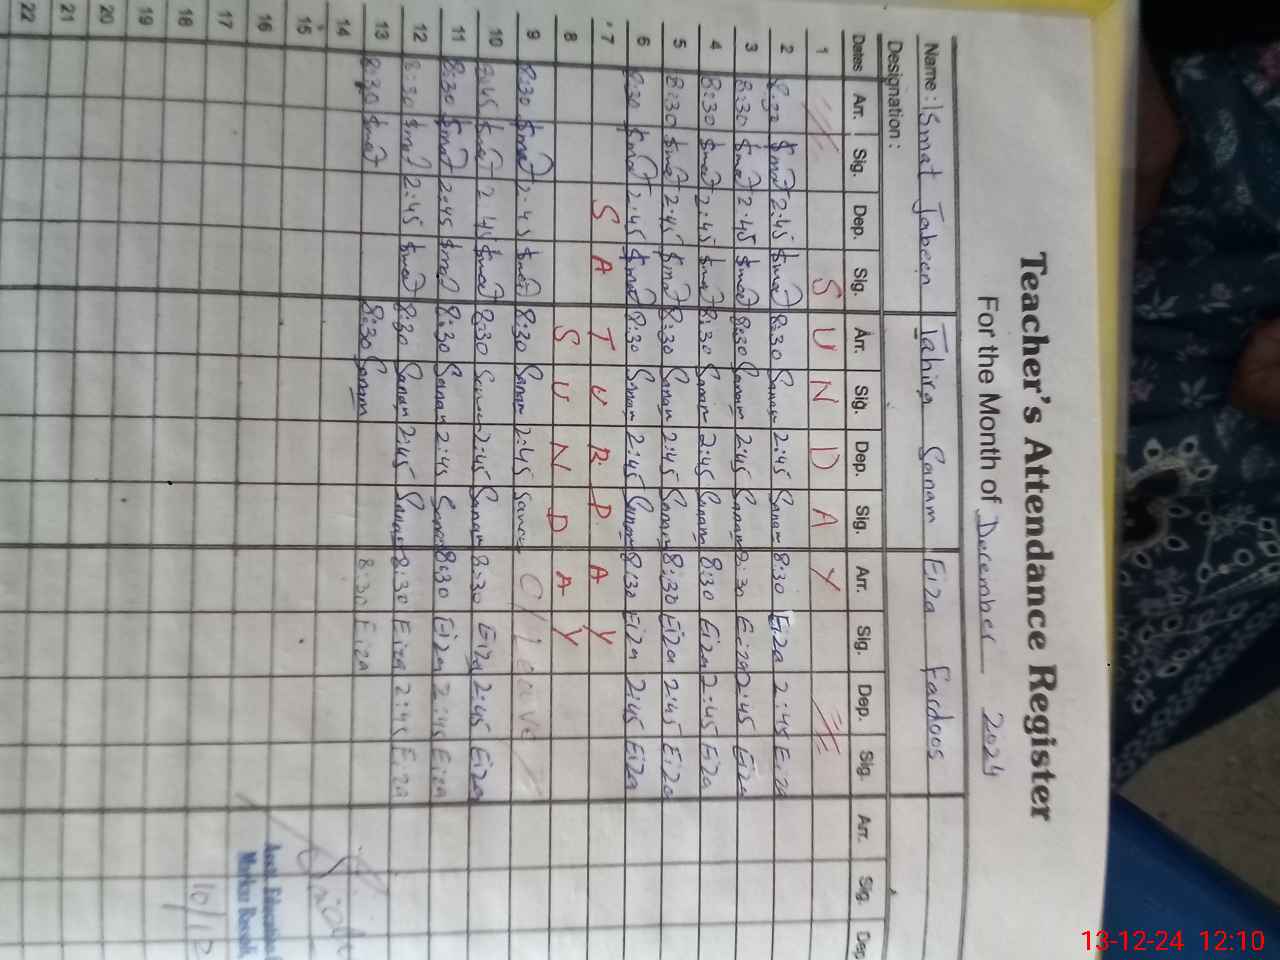 Teacher's Attendance Register
For the Month of December 2024
Name : Ismat Jabeen Tahira Sanam Eiza Fardoos
Designation :
Dates Arr. Sig. Dep. Sig. Arr. Sig. Dep. Sig. Arr. Sig. Dep. Sig. Arr. Sig. Dep
1 S U N D A Y
2 8:30 Ismat 2:45 Ismat 8:30 Sanam 2:45 Sanam 8:30 Eiza 2:45 Eiza
3 8:30 Ismat 2:45 Ismat 8:30 Sanam 2:45 Sanam 8:30 Eiza 2:45 Eiza
4 8:30 Ismat 2:45 Ismat 8:30 Sanam 2:45 Sanam 8:30 Eiza 2:45 Eiza
5 8:30 Ismat 2:45 Ismat 8:30 Sanam 2:45 Sanam 8:30 Eiza 2:45 Eiza
6 8:30 Ismat 2:45 Ismat 8:30 Sanam 2:45 Sanam 8:30 Eiza 2:45 Eiza
7 S A T U R D A Y
8 S U N D A Y
9 8:30 Ismat 2:45 Ismat 8:30 Sanam 2:45 Sanam C/Leave
10 8:45 Ismat 2 45 Ismat 8:30 Sanam 2:45 Sanam 8:30 Eiza 2:45 Eiza
11 8:30 Ismat 2:45 Ismat 8:30 Sanam 2:45 Sanam 8:30 Eiza 2:45 Eiza
12 8:30 Ismat 2:45 Ismat 8:30 Sanam 2:45 Sanam 8:30 Eiza 2:45 Eiza
13 8:30 Ismat 8:30 Sanam 8:30 Eiza
14
15
16
17
18 10/12
19
20
21
22
13-12-24 12:10